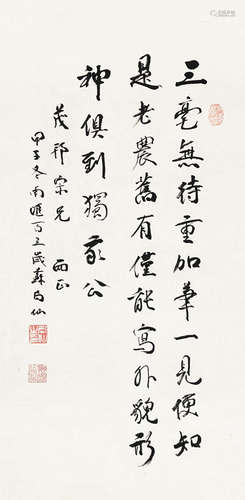 三毫無待重加筆一見便知
是老農舊有僅能寫外貌形
神俱到獨我公
茂祁宗兄 西正
甲子冬南匯百五歲蘇局仙